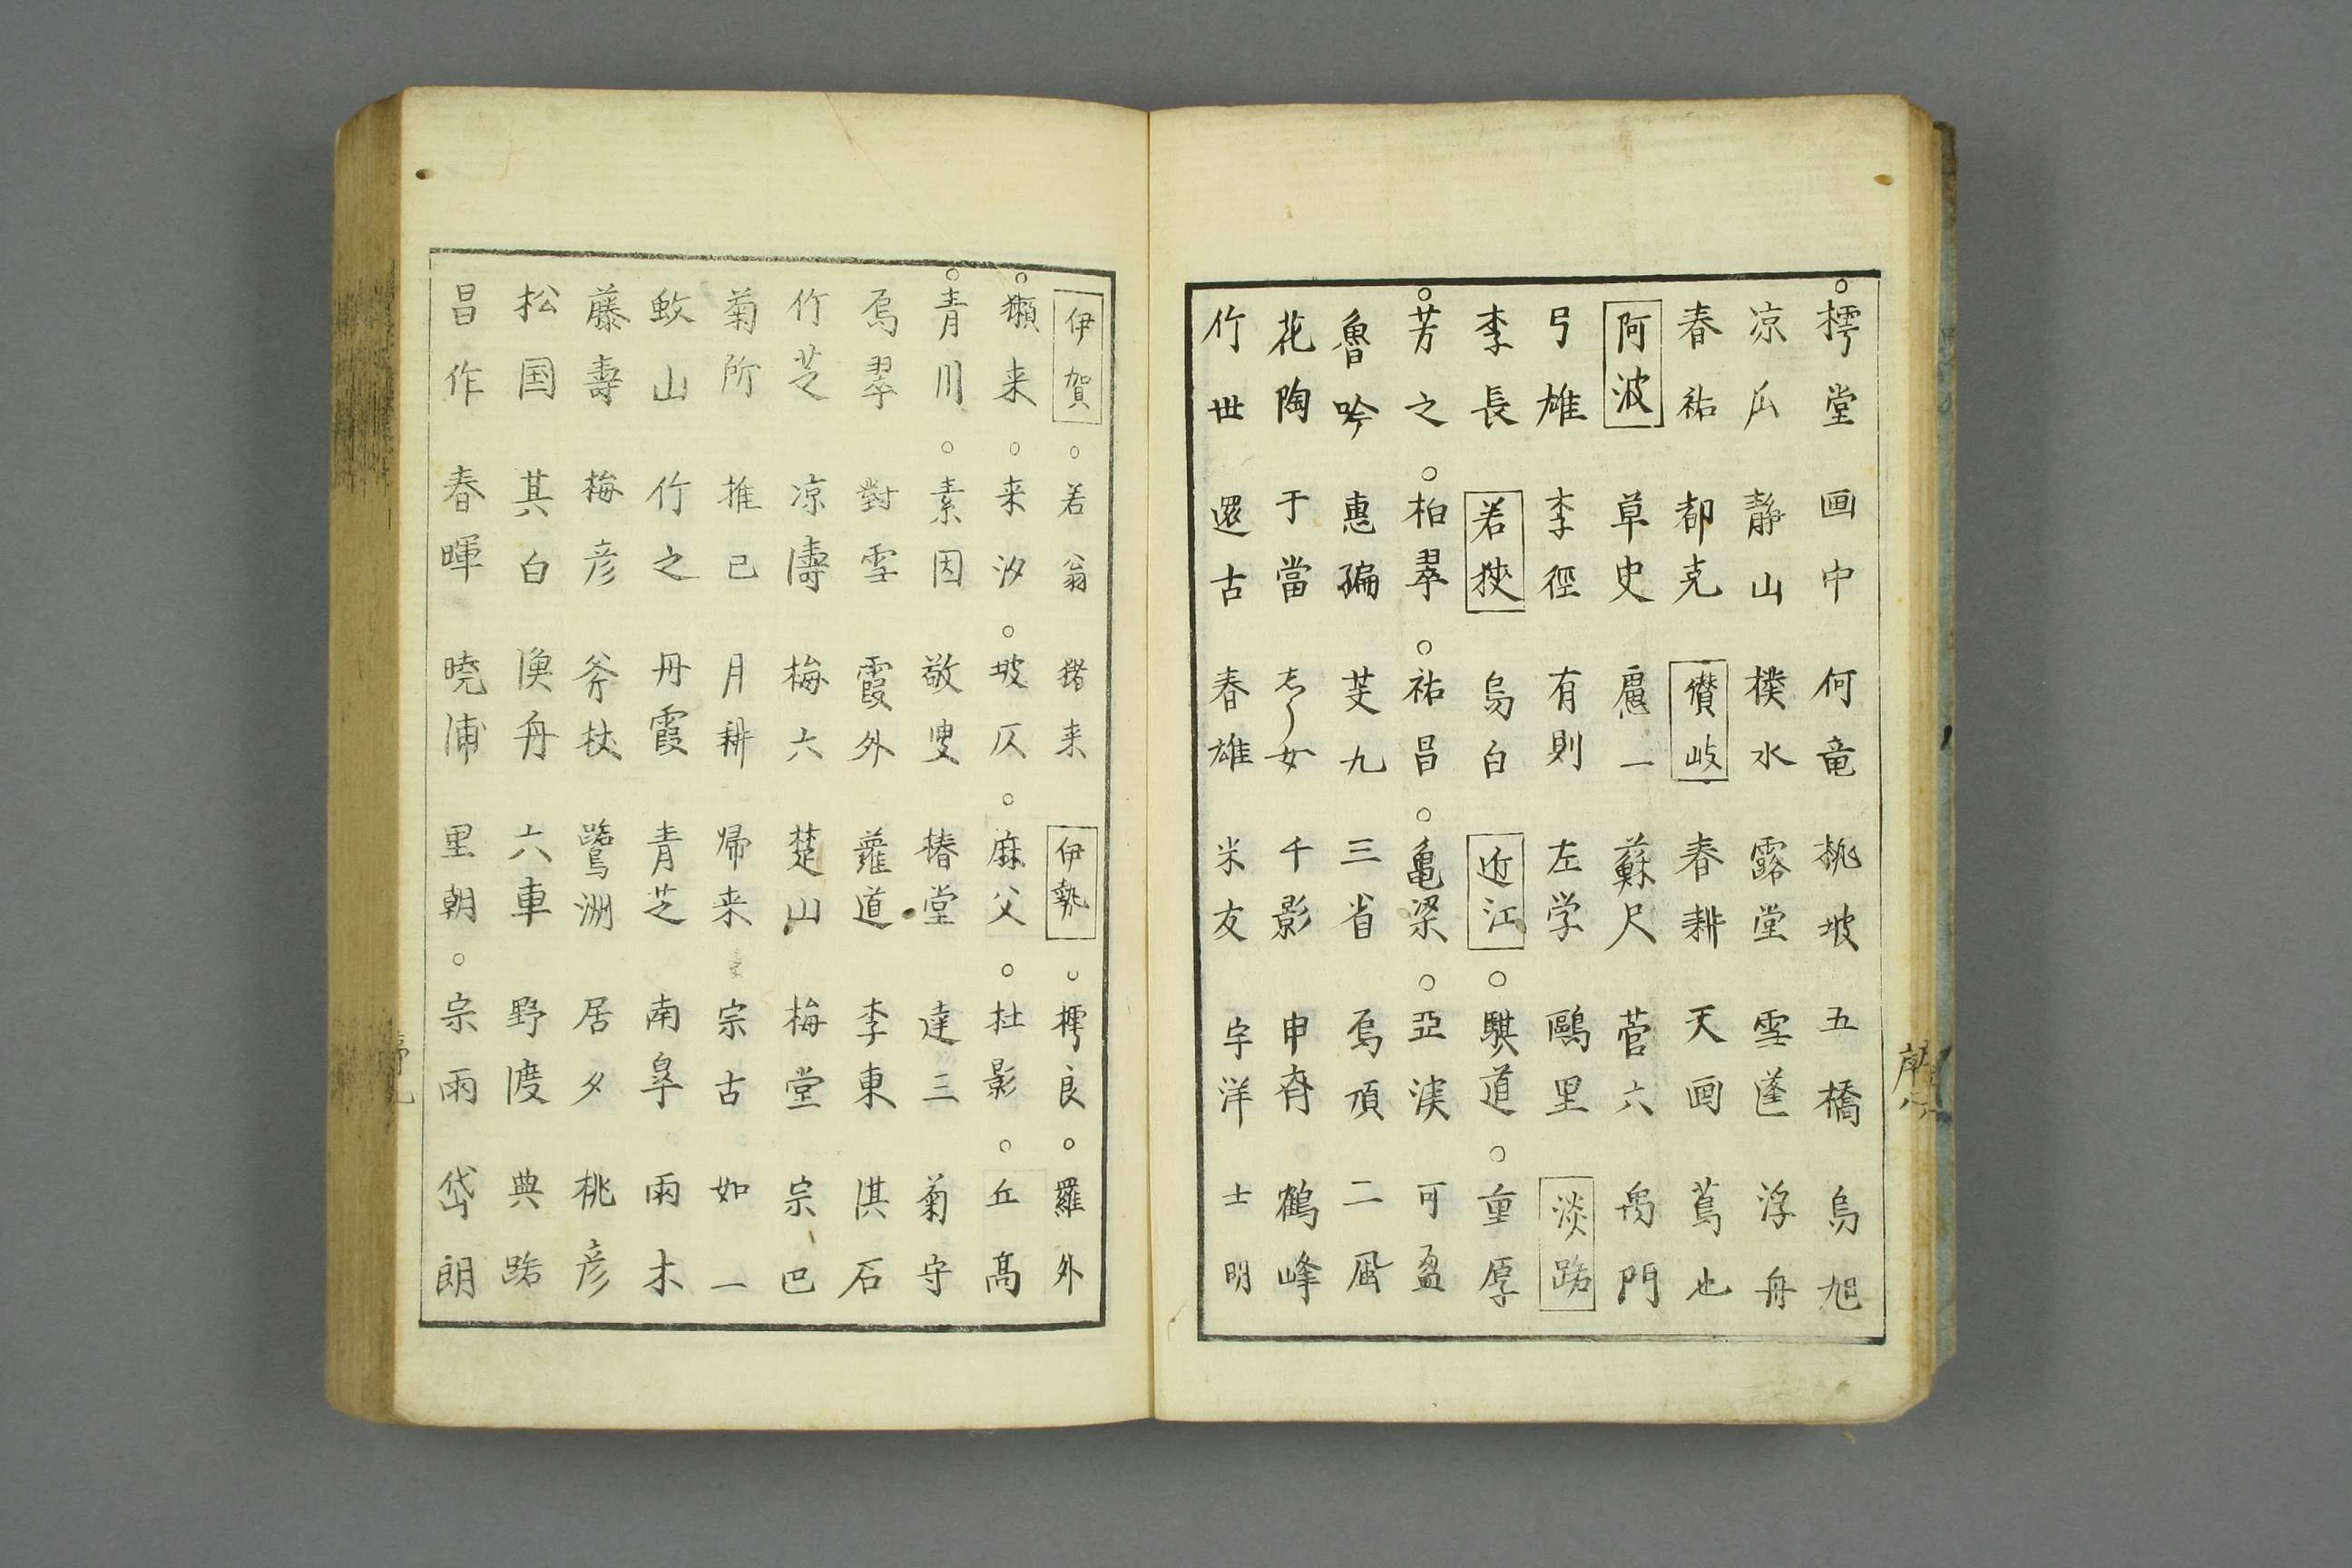 。樗堂 画中 何竜 桃坡 五橋 烏旭
凉瓜 静山 樸水 露堂 雪蓬 浮舟
春祐 都克 讃岐 春耕 天画 蔦也
阿波 草史 一 蘇尺 菅六 禹門
弓雄 李徑 有則 左学 鷗里 淡路
李長 若狹 烏白 近江 。騏道 。重厚
。芳之 。柏翠 。祐昌 。亀梁 。亞渓 可盈
魯吟 惠 芰九 三省 烏頂 二凮
花陶 于當 女 千影 申齊 鶴峰
竹世 還古 春雄 米友 宇洋 士明
伊賀 。若翁 猪来 伊勢 。樗良 。羅外
。獺来 。来汐 。坡仄 。麻父 。杜影 。丘高
。青川 。素因 敬叟 椿堂 達三 菊守
烏翠 對雪 霞外 蘿道 李東 淇石
竹芝 凉濤 梅六 楚山 梅堂 宗巴
菊所 推己 月耕 帰来 宗古 如一
蚊山 竹之 丹霞 青芝 南皐 雨木
藤壽 梅彦 斧杖 鷺洲 居夕 桃彦
松国 其白 漁舟 六車 野渡 典路
昌作 春暉 曉浦 里朝 。宗雨 岱朗